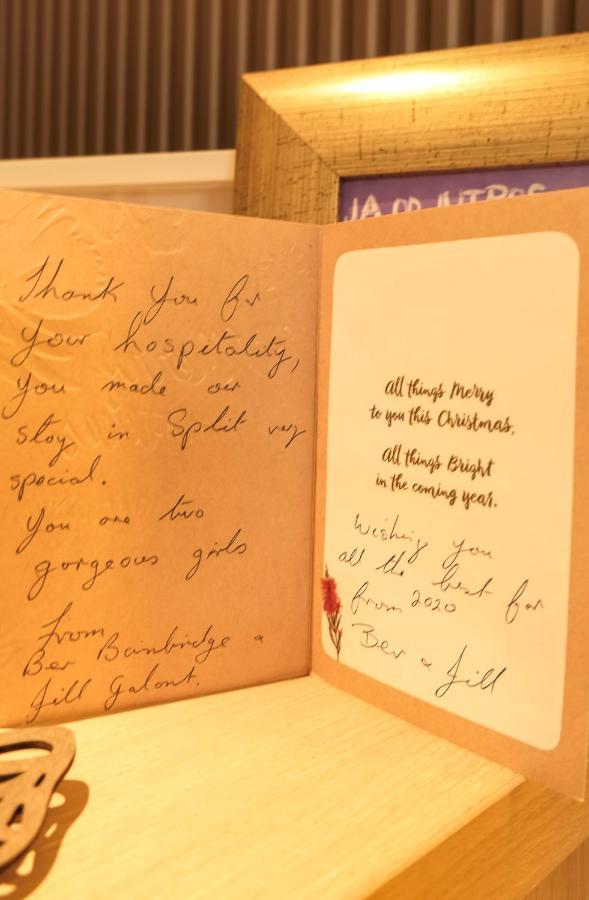 Thank you for
your hospitality,
you made our
stay in Split very
special.
You are two
gorgeous girls
from
Bev Bainbridge &
Jill Galont.
All things Merry
to you this Christmas,
All things Bright
in the coming year.
Wishing you
all the best for
from 2020
Bev & Jill